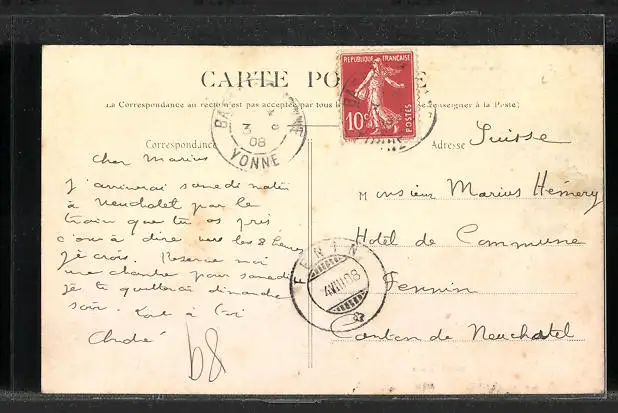 CARTE PO E
La Correspondance au recto n'est pas acceptée par tous l se renseigner à la Poste)
REPUBLIQUE FRANÇAISE
10c
POSTES
BA
3 08
YONNE
Correspondance
Adresse
Suisse
Cher Marius
J'arriverai samedi matin
à Neuchatel par le
train que tu as pris
c'est à dire vers les 8 heures
je crois. Reserve moi
une chambre pour samedi
je te quitterai dimanche
soir. Tout à toi
André
Monsieur Marius Hémery
Hotel de Commune
Fennin
canton de Neuchatel
FENIN
VIII 08
68